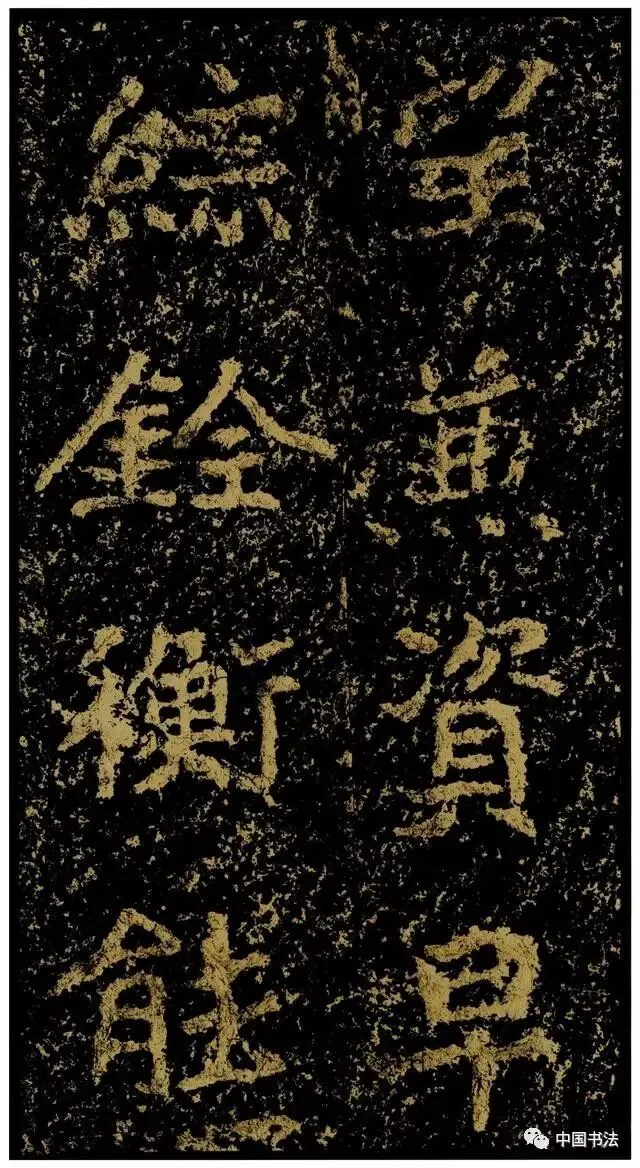 望兼資早
綜銓衡能
中国书法